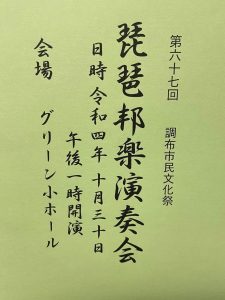 第六十七回　調布市民文化祭
琵琶邦楽演奏会
日時　令和四年　十月三十日
午後一時開演
会場　グリーン小ホール